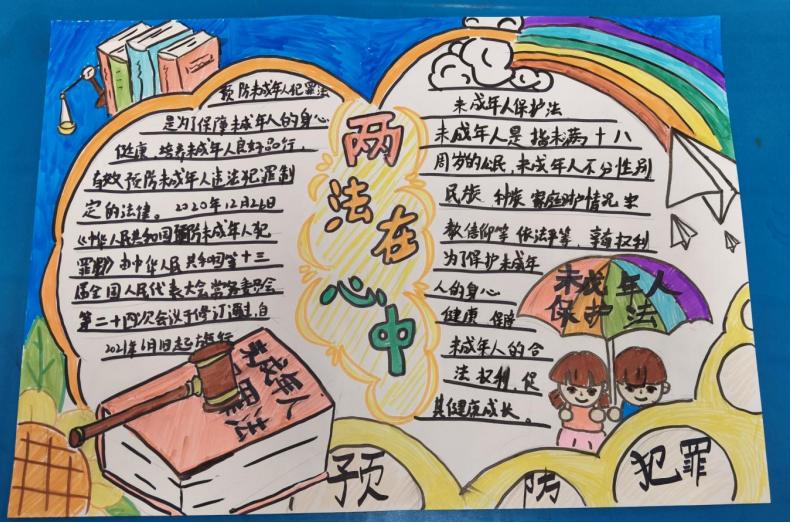 预防未成年人犯罪法
是为了保障未成年人的身心
健康,培养未成年人良好品行,
有效预防未成年人违法犯罪制
定的法律。2020年12月26日
《中华人民共和国预防未成年人犯
罪法》由中华人民共和国第十三
届全国人民代表大会常务委员会
第二十四次会议于修订通过,自
2021年6月1日起施行
两法在心中
未成年人保护法
未成年人是指未满十八
周岁的公民,未成年人不分性别
民族 种族 家庭财产情况 宗
教信仰等 依法平等,享有权利
为了保护未成年
人的身心
健康 保障
未成年人的合
法权利,促
其健康成长。
未成年人
保护法
未成年人
犯罪法
预防犯罪